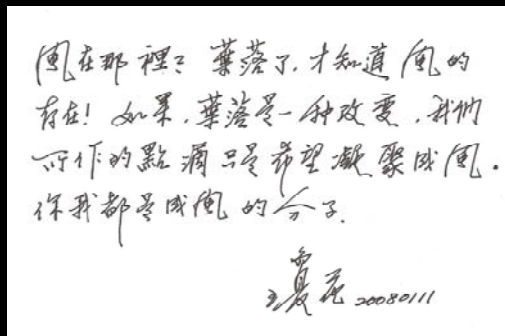 風在那裡？葉落了，才知道風的
存在！如果，葉落是一种改變，我們
所作的點滴只是希望凝聚成風。
你我都是成風的分子。
瓊花 20080111